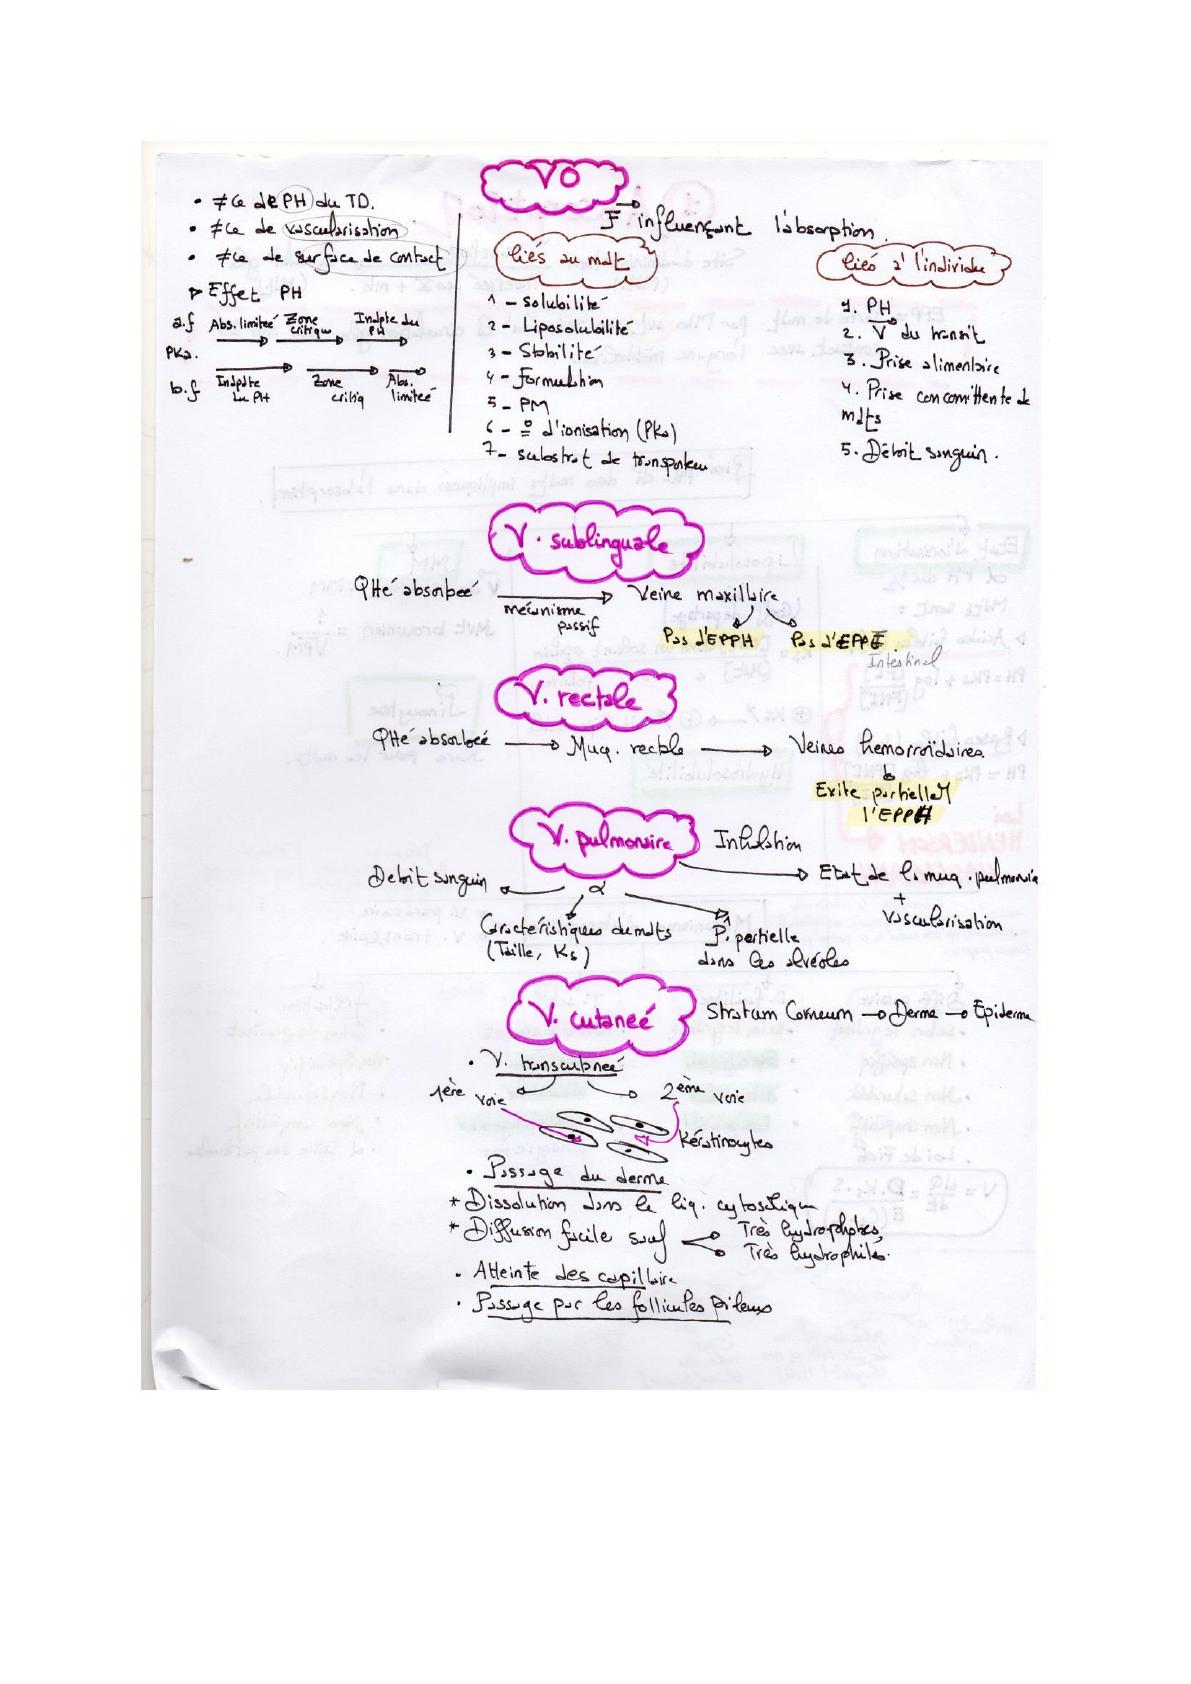 VO
• ≠ce de PH du TD.
• ≠ce de vascularisation
• ≠ce de surface de contact
▷ Effet PH
a.f Abs. limiteé Zone critiqu Indpte du PH
PKa.
b.f Indpdte du PH Zone critiq Abs. limiteé
F influençant l'absorption.
liés au mdt
1 - Solubilité
2 - Liposolubilité
3 - Stabilité
4 - Formulation
5 - PM
6 - d'ionisation (PKa)
7 - substrat de transporteur
liés à l'individu
1. PH
2. V du transit
3. Prise alimentaire
4. Prise concomittente de
mdts
5. Débit sanguin.
V. sublinguale
QHé absorbeé mécanisme passif Veine maxillaire
Pas d'EPPH Pas d'EPPI
Intestinal
V. rectale
QHé absorbeé Muq. rectale Veines hemorroïdaires.
Evite partielleM
l'EPPH
V. pulmonaire Inhalation
Debit sanguin α Etat de la muq. pulmonaire
+
vascularisation
Caractéristiques du mdts
(Taille, Ks)
P. partielle
dans les alvéoles
V. cutaneé Stratum Corneum → Derme → Epiderme
• V. transcutaneé
1ère voie 2ème voie
Kératinocytes
• Passage du derme
* Dissolution dans le liq. cytosolique
* Diffusion facile sauf Très hydrophobes,
Très hydrophiles.
• Atteinte des capillaire
• Passage par les follicules pileux